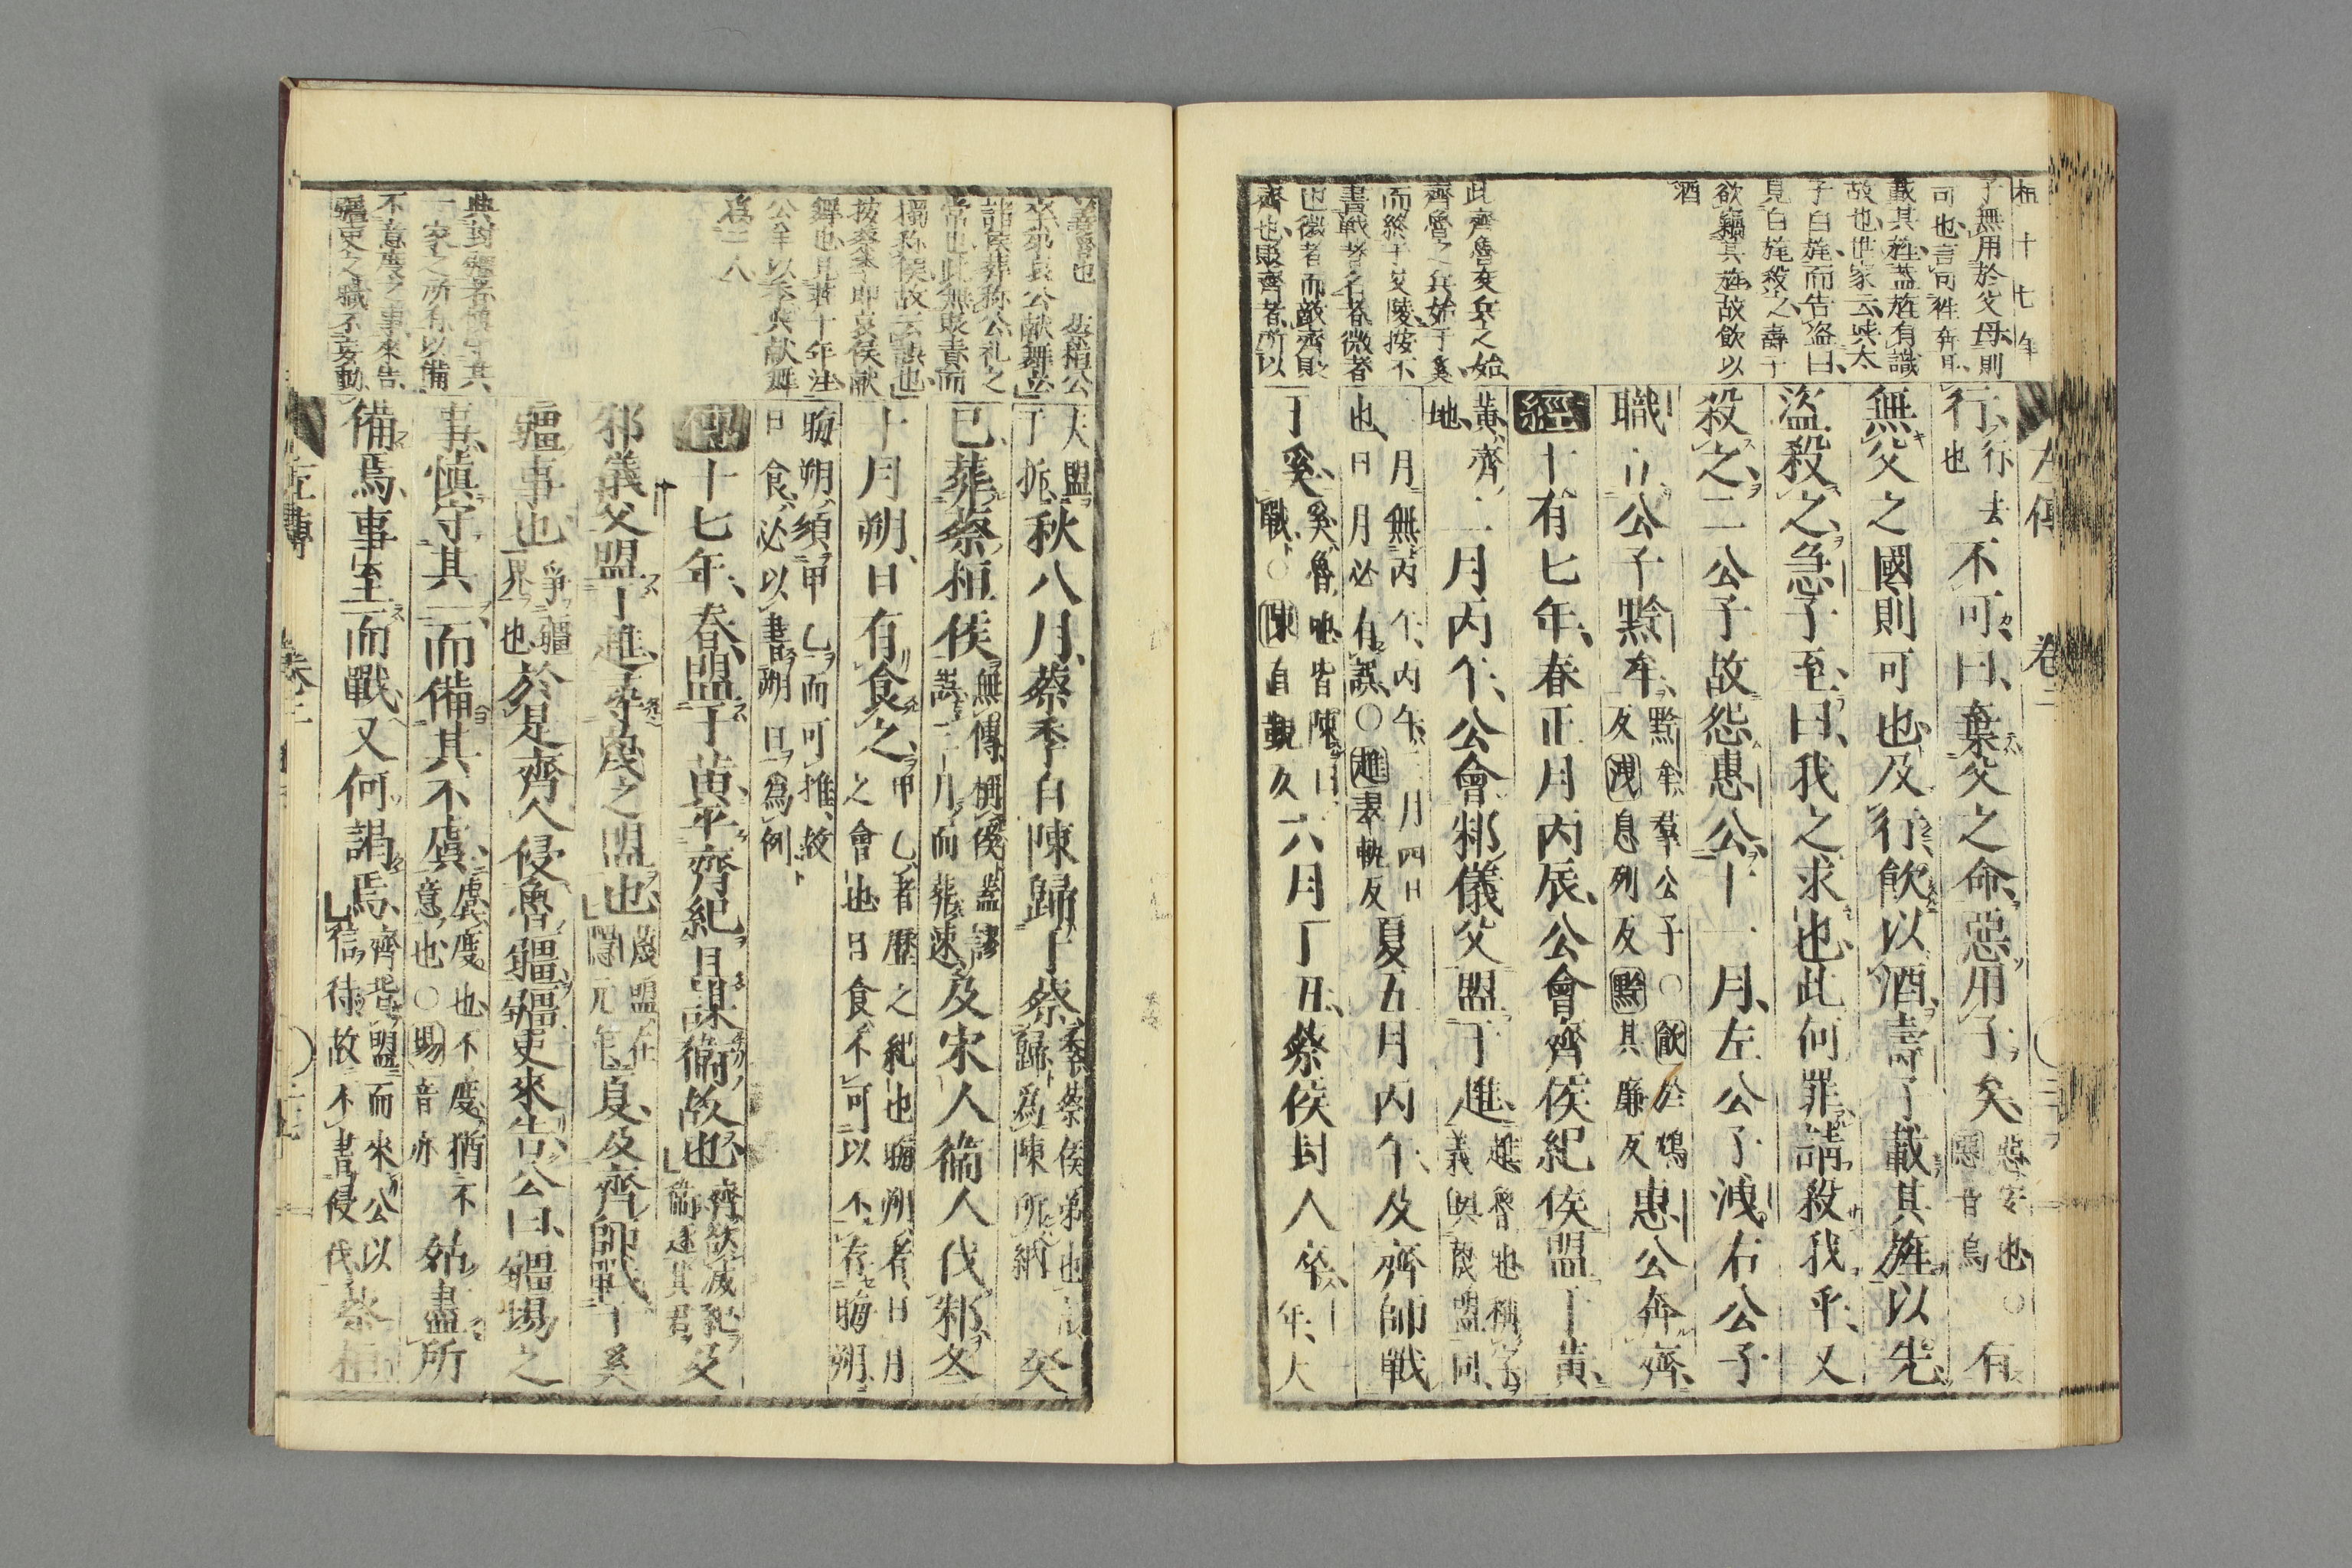 桓十七年
子無用於父母則
可也言何唯奔耳
載其旌蓋旌有識
故也世家云與太
子白旄而告盜曰
見白旄殺之壽子
欲竊其旌故飲以
酒
此齊魯交兵之始
齊魯之兵始于奚
而終于艾陵按不
書戰者名者微者
也微者而敵齊則
齊也敗齊者所以
左傳 卷二
行行去也不可曰棄父之命惡用子矣惡安也○惡音烏有
無父之國則可也及行飲以酒壽子載其旌以先
盜殺之急子至曰我之求也此何罪請殺我乎又
殺之二公子故怨惠公十一月左公子洩右公子
職立公子黔牟黔牟羣公子○飲於鴆反洩息列反黔其廉反惠公奔齊
經十有七年春正月丙辰公會齊侯紀侯盟于黃
黃齊地二月丙午公會邾儀父盟于趡趡魯地稱字義與蔑盟同
二月無丙午丙午三月四日也日月必有誤○趡翠軌反夏五月丙午及齊師戰
于奚奚魯地皆陳曰戰○陳直覲反六月丁丑蔡侯封人卒十一年大
夫盟于折秋八月蔡季自陳歸于蔡季蔡侯弟也言歸為陳所納癸
巳葬蔡桓侯無傳稱侯蓋謬誤三月而葬速及宋人衞人伐邾冬
十月朔日有食之甲乙者歷之紀也晦朔者日月之會也日食不可以不存晦朔
晦朔須甲乙而可推故日食必以書朔日為例
傳十七年春盟于黃平齊紀且謀衞故也齊欲滅紀衞逐其君及
邾儀父盟于趡尋蔑之盟也蔑盟在隱元年夏及齊師戰于奚
疆事也爭疆界也於是齊人侵魯疆疆吏來告公曰疆場之
事慎守其一而備其不虞虞度也不度猶不意也○場音亦姑盡所
備焉事至而戰又何謁焉齊背盟而來公以信待故不書侵伐蔡桓
左傳 卷二
蔡桓公
卒弟哀公獻舞立
諸侯葬稱公礼之
常也此無貶責而
獨称侯故云誤也
按蔡季即哀侯献
舞也見莊十年注
公羊以季與献舞
為二人
典封疆者慎守其
一家之所有以備
不意度之事來告
疆吏之職不妄動